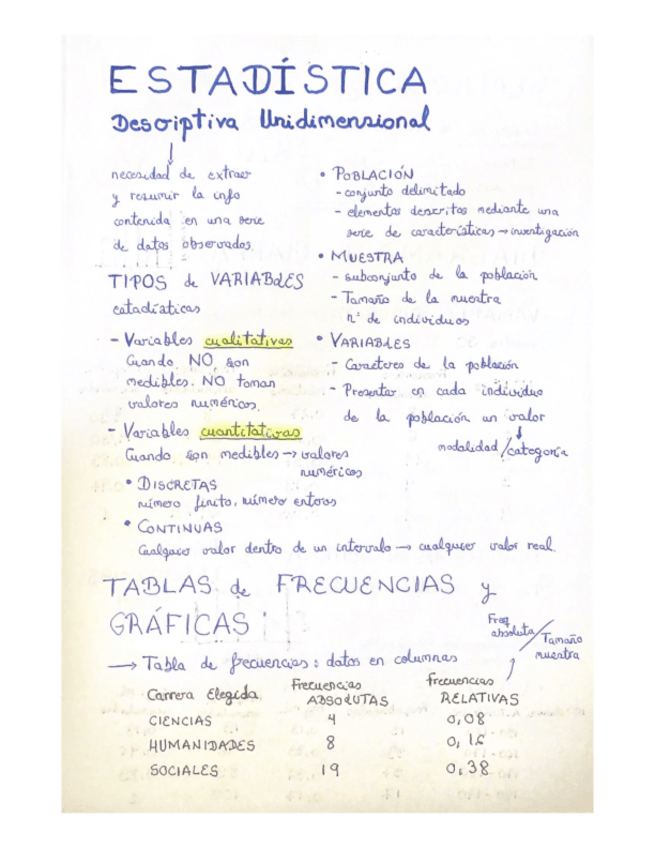 ESTADÍSTICA
Descriptiva Unidimensional
necesidad de extraer
y resumir la info
contenida en una serie
de datos observados.
TIPOS de VARIABLES
estadísticas
- Variables cualitativas
Cuando NO son
medibles. NO toman
valores numéricos.
- Variables cuantitativas
Cuando son medibles → valores
numéricos
• DISCRETAS
número finito, número enteros
• CONTINUAS
Cualquier valor dentro de un intervalo → cualquier valor real.
• POBLACIÓN
- conjunto delimitado
- elementos descritos mediante una
serie de características → investigación
• MUESTRA
- subconjunto de la población
- Tamaño de la muestra
nº de individuos
• VARIABLES
- Caracteres de la población
- Presentar en cada individuo
de la población un valor
modalidad / categoría
TABLAS de FRECUENCIAS y
GRÁFICAS
Freq.
absoluta / Tamaño
muestra
→ Tabla de frecuencias: datos en columnas
Carrera Elegida Frecuencias ABSOLUTAS Frecuencias RELATIVAS
CIENCIAS 4 0,08
HUMANIDADES 8 0,16
SOCIALES 19 0,38